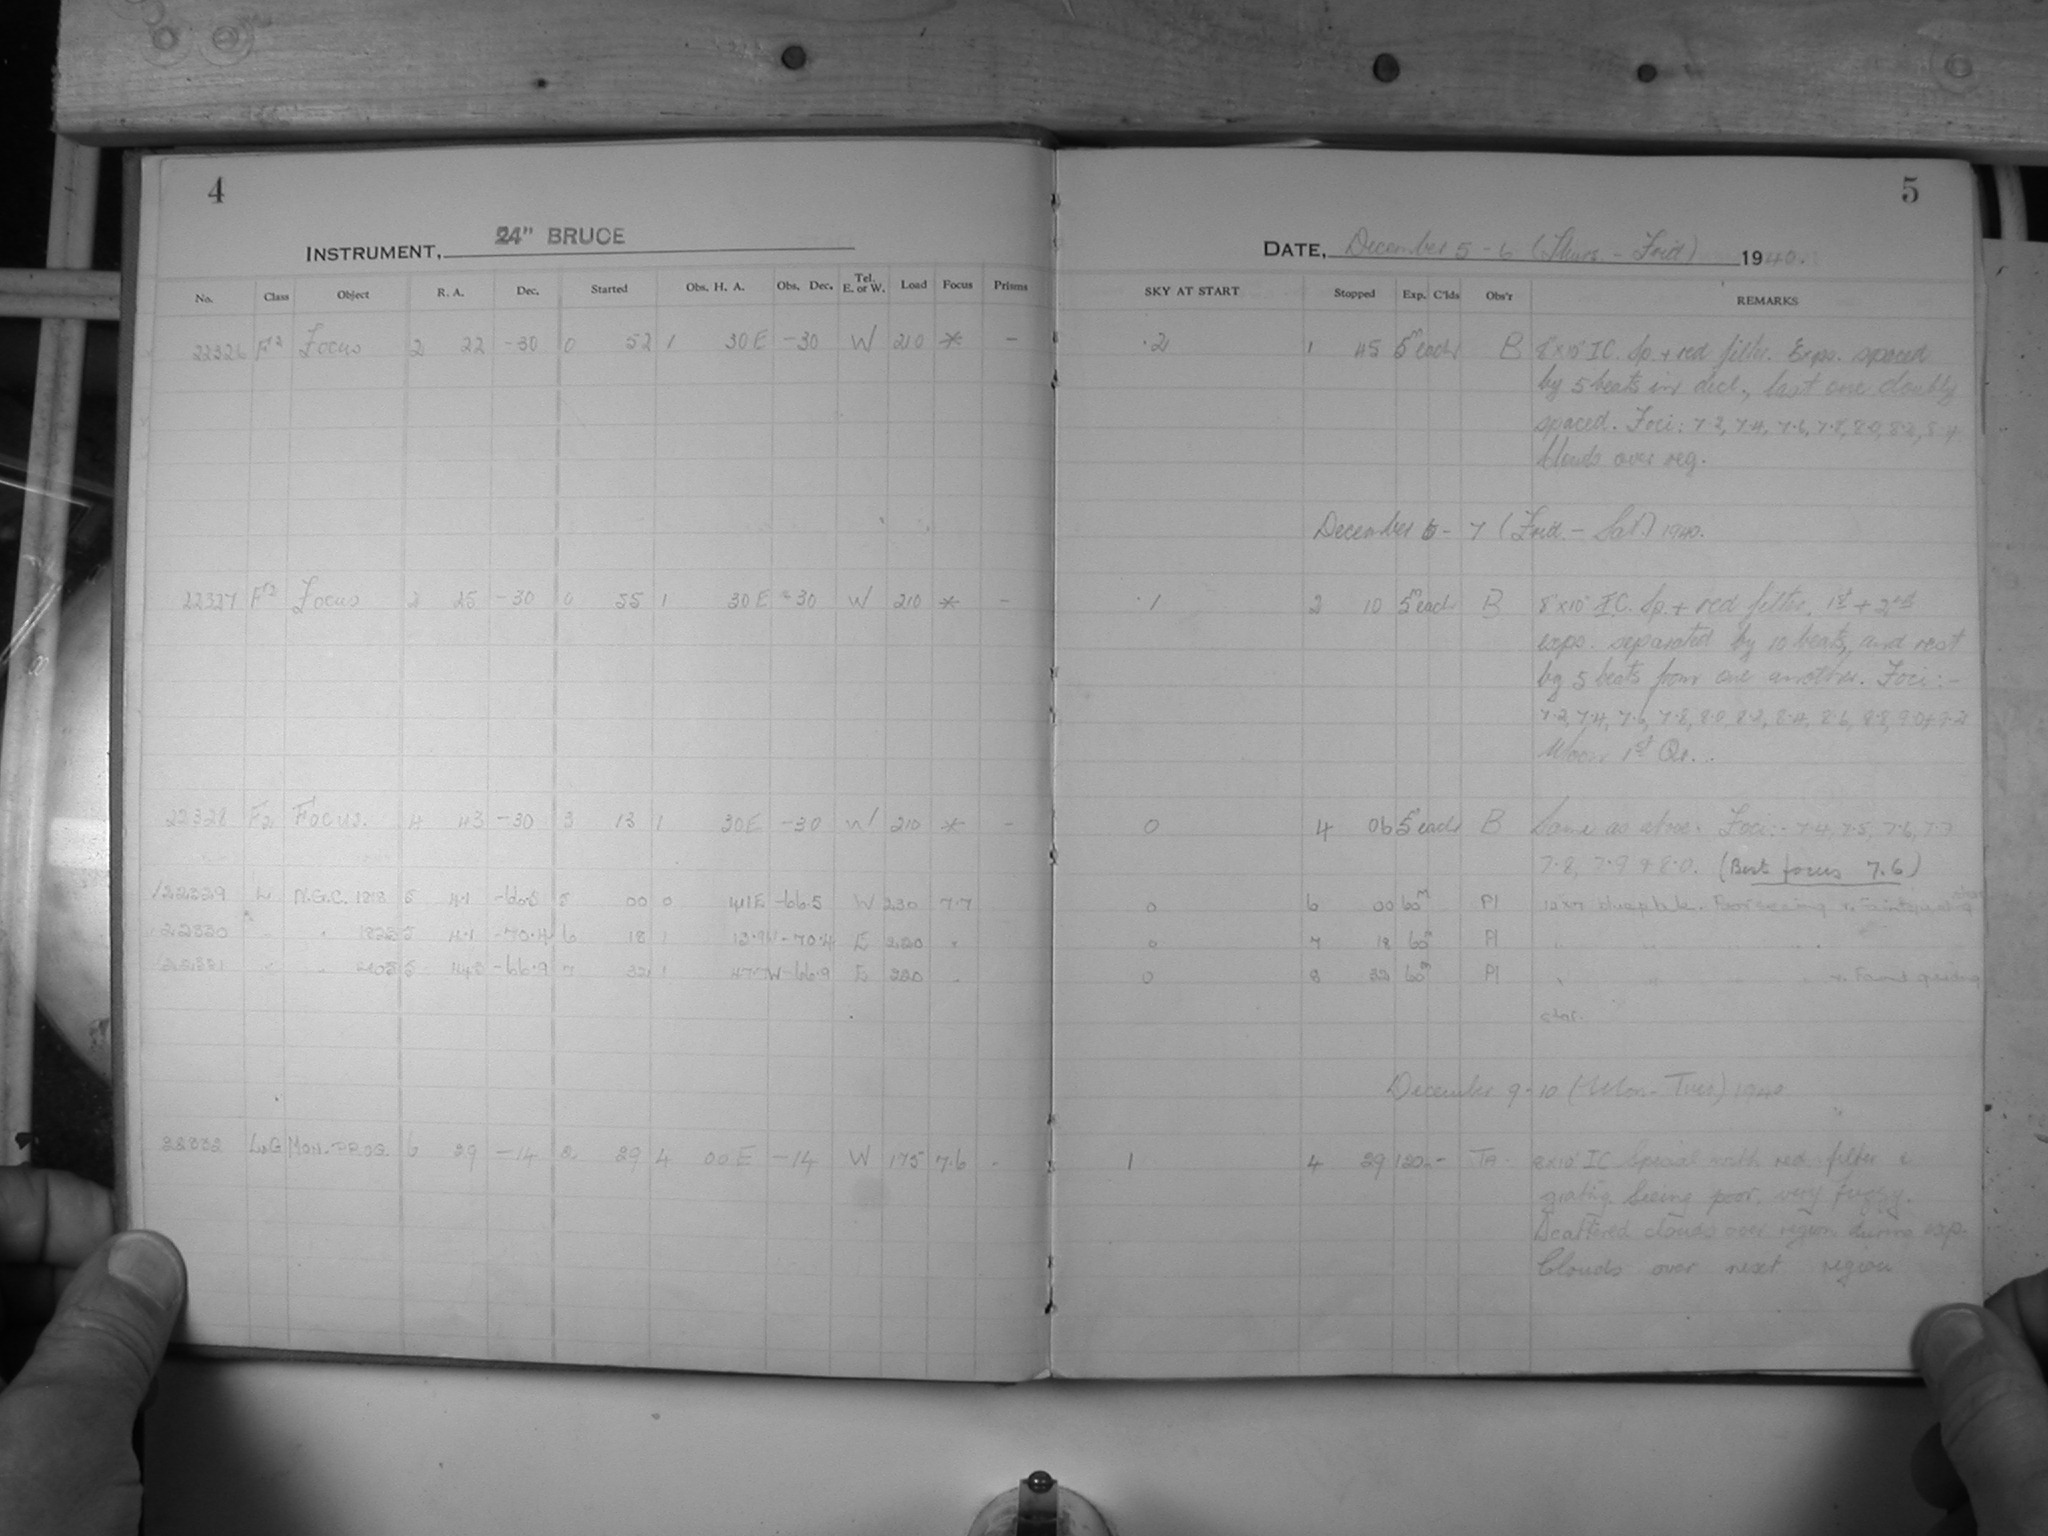 4
INSTRUMENT, 24" BRUCE
No. Class Object R. A. Dec. Started Obs. H. A. Obs. Dec. Tel. E. or W. Load Focus Prisms
22326 F2 Focus 2 22 -30 0 52 1 30 E -30 W 210 * -
22327 F2 Focus 2 25 -30 0 55 1 30 E -30 W 210 * -
22328 F2 Focus. 4 43 -30 3 13 1 30E -30 W 210 * -
22329 L N.G.C. 1818 5 4.1 -66.5 5 00 0 41E -66.5 W 230 7.7
22330 " " 5 4.1 -70.4 6 18 1 -70.4 E 220 "
22331 " " 5 -66.9 7 32 1 47.7W -66.9 E 220 "
22332 MON. PROG. 6 29 -14 2 29 4 00 E -14 W 175 7.6 -
5
DATE, December 5 - 6 (Thurs. - Frid) 1940.
SKY AT START Stopped Exp. C'lds Obs'r REMARKS
.2 1 45 5m each B 8"x10" IC. Sp. + red filter. Exps. spaced
by 5 beats in decl., last one doubly
spaced. Foci: 7.2, 7.4, 7.6, 7.8, 8.0, 8.2, 8.4
Clouds over reg.
December 6 - 7 (Frid. - Sat.) 1940.
.1 2 10 5m each B 8"x10" IC. Sp. + red filter. 1st + 2nd
exps. separated by 10 beats, and rest
by 5 beats from one another. Foci:-
7.2, 7.4, 7.6, 7.8, 8.0, 8.2, 8.4, 8.6, 8.8, 9.0 + 9.2
Moon 1st Qr..
0 4 06 5m each B Same as above. Foci:- 7.4, 7.5, 7.6, 7.7
7.8, 7.9 + 8.0. (Best focus 7.6)
0 6 00 60m Pl Poor seeing
0 7 18 60m Pl " "
0 8 32 60m Pl " " v. Faint guiding
star.
December 9 - 10 (Mon - Tues) 1940
1 4 29 120 - TA 8x10" IC Special with red filter &
grating. Seeing poor. very fuzzy.
Scattered clouds over region during exp.
Clouds over next region